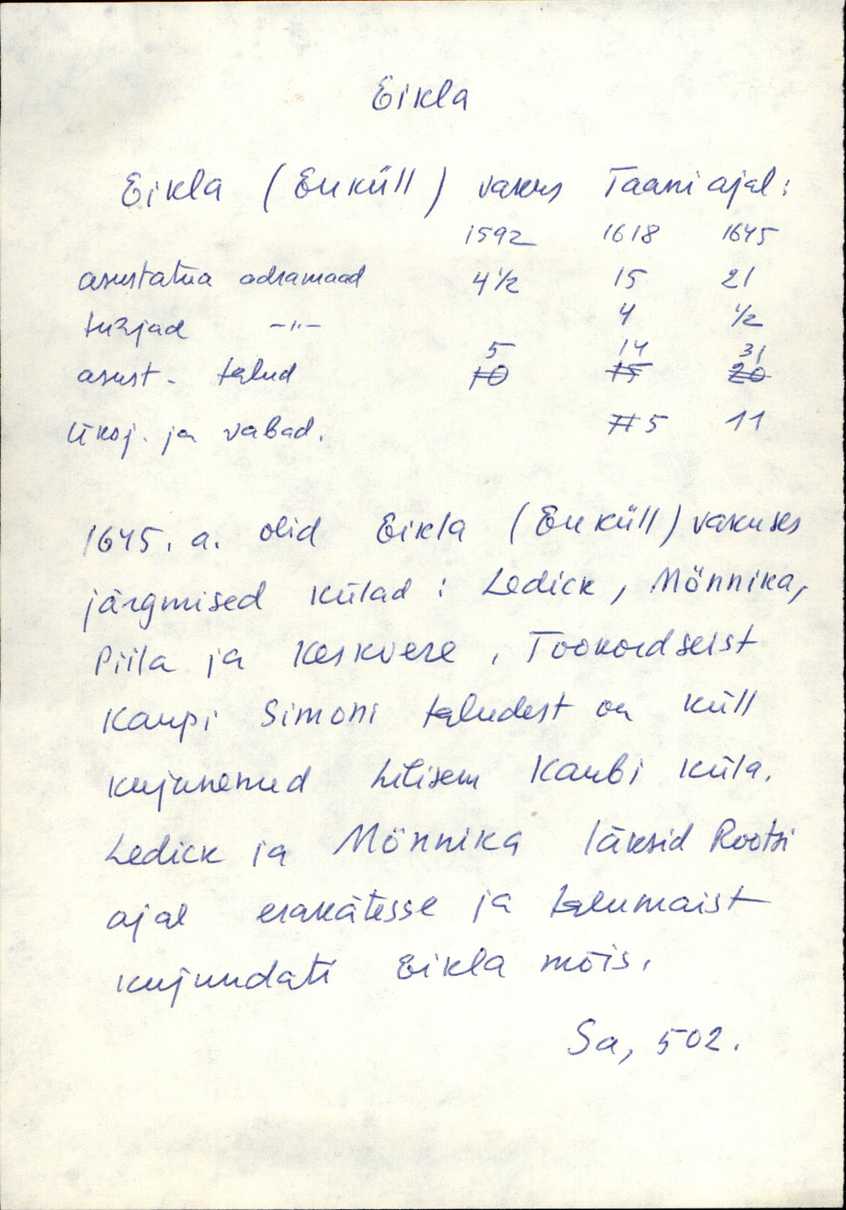 Eikla
Eikla (Euküll) vakus Taani ajal:
1592 1618 1645
asustatud adramaad 4 1/2 15 21
tühjad -"- 4 1/2
5 14 31
asust. talud 10 15 20
Üksj. ja vabad. 5 11
1645. a. olid Eikla (Euküll) vakuses
järgmised külad: Ledick, Mõnnika,
Piila ja Keskvere, Tookordseist
Kaupi Simoni taludest on küll
kujunenud hilisem Kaubi küla.
Ledick ja Mõnnika läksid Rootsi
ajal erakätesse ja talumaist
kujundati Eikla mõis.
Sa, 502.